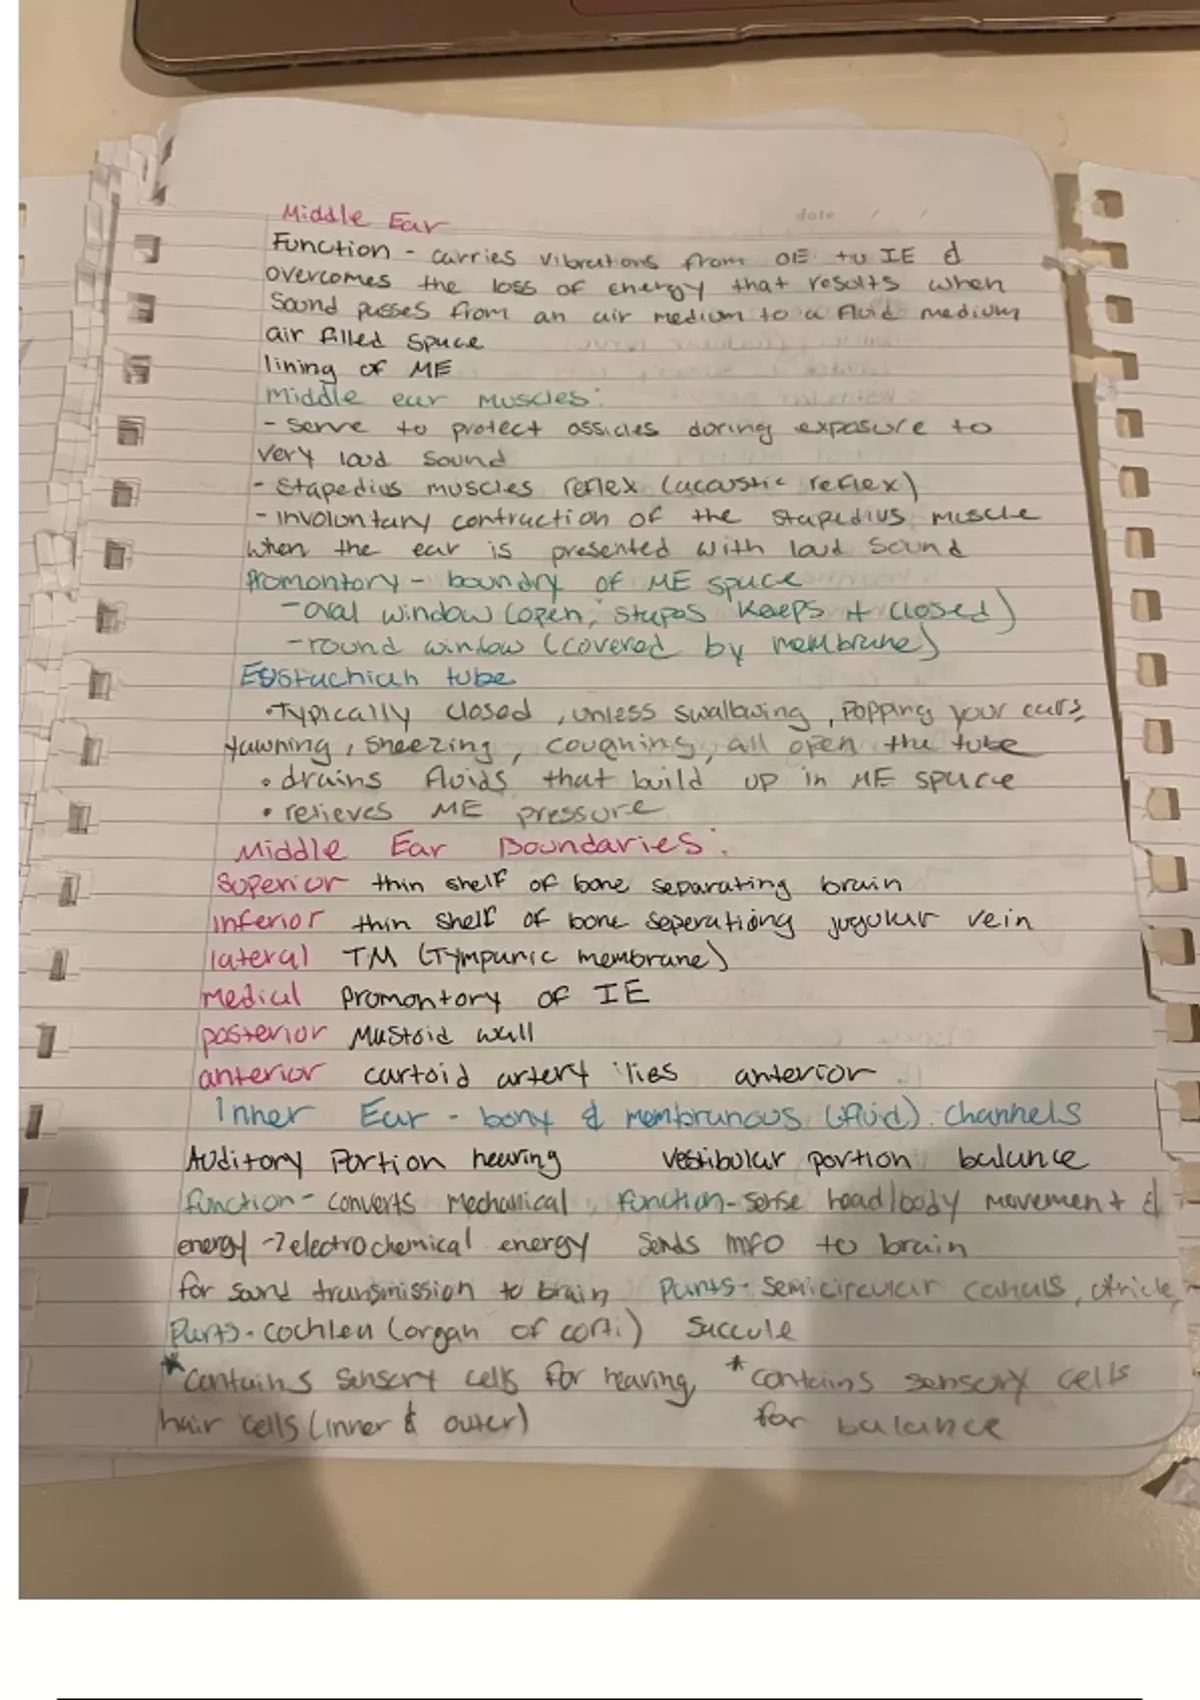 date / /
Middle Ear
Function - carries vibrations from OE to IE &
overcomes the loss of energy that results when
Sound passes from an air medium to a fluid medium
air filled space
lining of ME
middle ear muscles:
- serve to protect ossicles during exposure to
very loud sound
- Stapedius muscles reflex (acoustic reflex)
- involuntary contraction of the stapedius muscle
when the ear is presented with loud sound
Promontory - boundry of ME space
- oval window (open; stapes keeps it closed)
- round window (covered by membrane)
Eustachian tube
• Typically closed, unless swallowing, popping your ears,
yawning, sneezing, coughing, all open the tube
• drains fluids that build up in ME space
• relieves ME pressure
Middle Ear Boundaries:
Superior thin shelf of bone separating brain
inferior thin shelf of bone seperationg jugular vein
lateral TM (Tympanic membrane)
medical promontory of IE
posterior Mastoid wall
anterior cartoid artery lies anterior
Inner Ear - bony & membranous (fluid) channels
Auditory Portion hearing vestibular portion balance
function - converts mechanical, function - sense head/body movement &
energy -> electrochemical energy sends info to brain
for sound transmission to brain parts - semicircular canals, utricle,
Parts - cochlea (organ of corti) saccule
*contains sensory cells for hearing, *contains sensory cells
hair cells (inner & outer) for balance